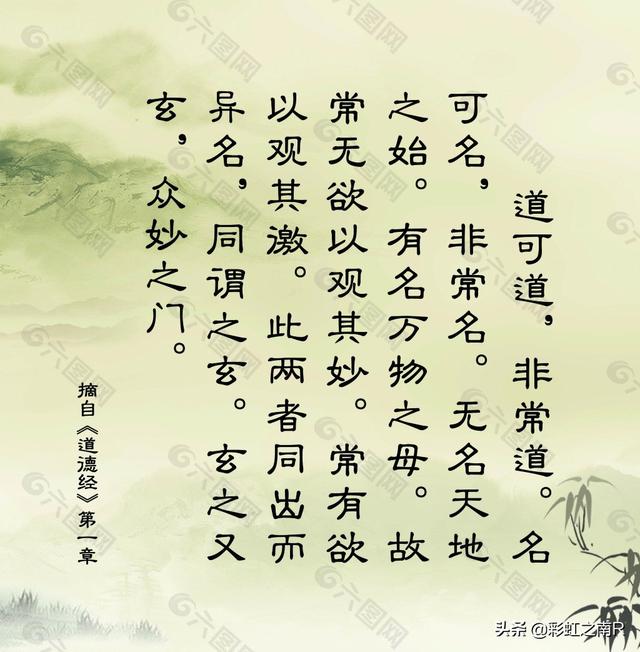 道可道，非常道。名
可名，非常名。无名天地
之始。有名万物之母。故
常无欲以观其妙。常有欲
以观其激。此两者同出而
异名，同谓之玄。玄之又
玄，众妙之门。
摘自《道德经》第一章
六图网
头条 @彩虹之南R